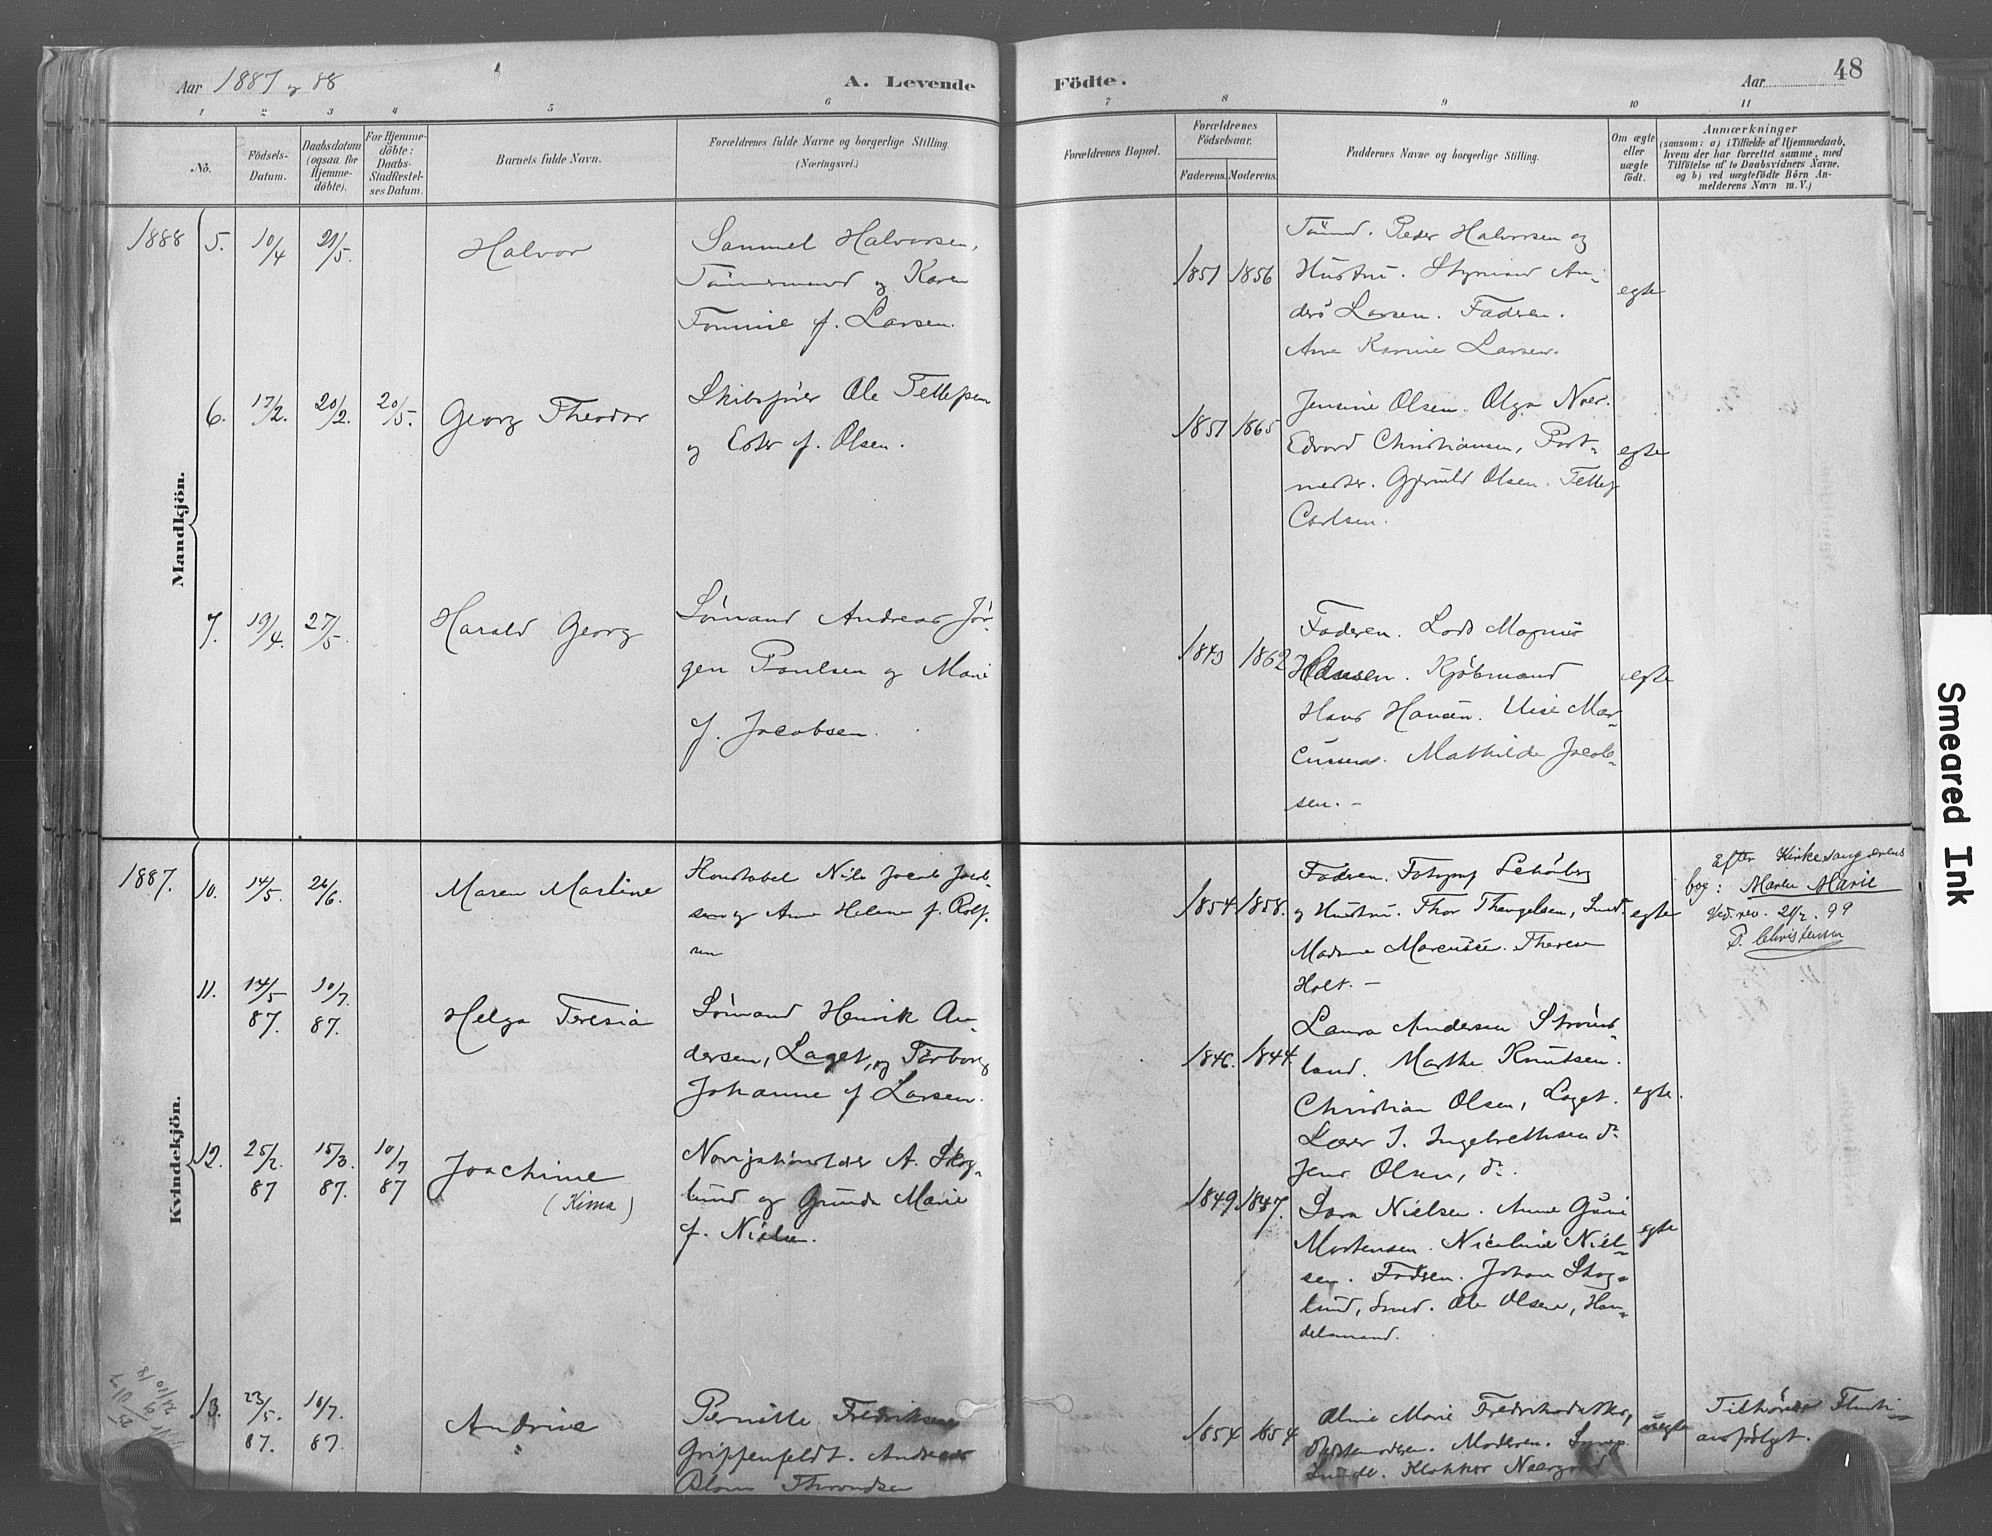 Aar 1887 og 88
A. Levende Födte.
Aar
48
1 2 3 4 5 6 7 8 9 10 11
No.
Födsels-Datum.
Daabsdatum (ogsaa for Hjemme-döbte).
For Hjemme-döbte: Daabs-Stadfæstel-ses Datum.
Barnets fulde Navn.
Forældrenes fulde Navne og borgerlige Stilling.
(Næringsvei.)
Forældrenes Bopæl.
Forældrenes Födselsaar.
Faderens. Moderens.
Faddernes Navne og borgerlige Stilling.
Om ægte eller uægte födt.
Anmærkninger
(saasom: a) i Tilfælde af Hjemmedaab,
hvem der har forrettet samme, med
Tilföielse af to Daabsvidners Navne.
og b) ved uægtefödte Börn An-
melderens Navn m. V.)
Mandkjön.
1888 5. 10/4 21/5. Halvor
Samuel Halvorsen,
Tömmermand og Karen
Tomine f. Larsen.
1851 1856
Tömmd. Peder Halvorsen og
Hustru. Styrmand An-
ders Larsen. Faderen.
Ane Karine Larsen.
egte
6. 17/2. 20/2. 20/5. Georg Theodor
Skibsfører Ole Tellefsen
og Ester f. Olsen.
1851 1865
Jensine Olsen. Olga Noer.
Edvard Christiansen, Post-
mester. Gjeruld Olsen. Tellef
Carlsen.
egte
7. 19/4. 27/5. Harald Georg
Sømand Andreas Jör-
gen Paulsen og Marie
f. Jacobsen.
1862
Faderen. Lods Magnus
Hansen. Kjøbmand
Hans Hansen. Mar-
cussen. Mathilde Jacob-
sen. –
egte
Kvindekjön.
1887. 10. 14/5. 26/6. Maren Martine
Konstabel Nils Jacob Jacob-
sen og Anne Helene f. Rolf-
sen
1854 1858.
Faderen. Fotograf Schöberg
og Hustru. Thor Thengelsen, Smed.
Madame Marcussen. Therese
Holt. –
egte
Efter Kirkesangerens
bog: Maren Marie
Ved. rev. 99
P. Christensen
11. 14/5 87. 10/7. 87. Helga Teresia
Sømand Henrik An-
dersen, Laget, og Torborg
Johanne f. Larsen.
1846. 1844.
Laura Andersen Ströms-
land. Marthe Knutsen.
Christian Olsen, Laget.
Lærer J. Ingebrethsen do.
Jens Olsen, do.
egte.
12. 25/2. 87 15/3. 87. 10/7 87 Joachime
(Kima)
Navigationslærer A. Skog-
lund og Gunda Marie
f. Nielsen.
1849 1847.
Sara Nielsen. Anne Gurine
Mortensen. Nicoline Niel-
sen. Faderen. Johan Skog-
lund, Smed. Ole Olsen, Han-
delsmand.
egte
13. 23/5. 87. 10/7. 87. Andrine
Pernille Fredriksen
Grippenfeldt. Andreas
Throndsen
1854 1854
Aline Marie Fredriksdatter,
Moderen.
Klokker Neergaard
uegte
Smeared Ink